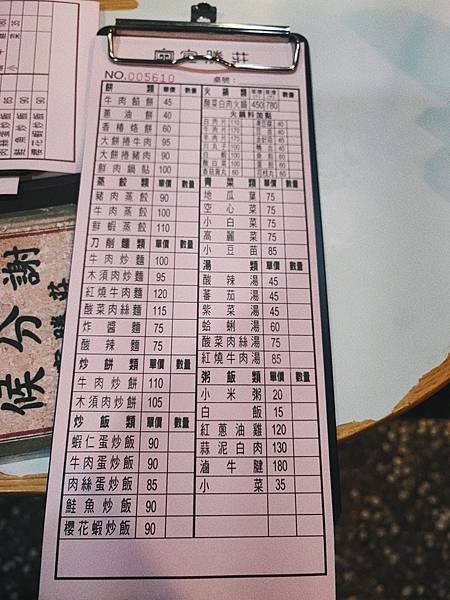 勝莊
NO.005610
桌號：
餅類 單價 數量
牛肉餡餅 45
蔥油餅 40
香椿烙餅 60
大餅捲牛肉 95
大餅捲豬肉 90
鮮肉鍋貼 100
蒸餃類 單價 數量
豬肉蒸餃 90
牛肉蒸餃 100
鮮蝦蒸餃 110
刀削麵類 單價 數量
牛肉炒麵 100
木須肉炒麵 95
紅燒牛肉麵 120
酸菜肉絲麵 115
炸醬麵 75
酸辣麵 75
炒餅類 單價 數量
牛肉炒餅 110
木須肉炒餅 105
炒飯類 單價 數量
蝦仁蛋炒飯 90
牛肉蛋炒飯 90
肉絲蛋炒飯 85
鮭魚炒飯 90
櫻花蝦炒飯 90
火鍋類
酸菜白肉火鍋 450 780
火鍋料加點
青菜類 單價 數量
地瓜葉 75
空心菜 75
小白菜 75
高麗菜 75
小豆苗 85
湯類 單價 數量
酸辣湯 45
蕃茄湯 45
紫菜湯 45
蛤蜊湯 60
酸菜肉絲湯 75
紅燒牛肉湯 85
粥飯類 單價 數量
小米粥 20
白飯 15
紅蔥油雞 120
蒜泥白肉 130
滷牛腱 180
小菜 35
肉絲蛋炒飯 85
鮭魚炒飯 90
櫻花蝦炒飯 90
謝
分
候